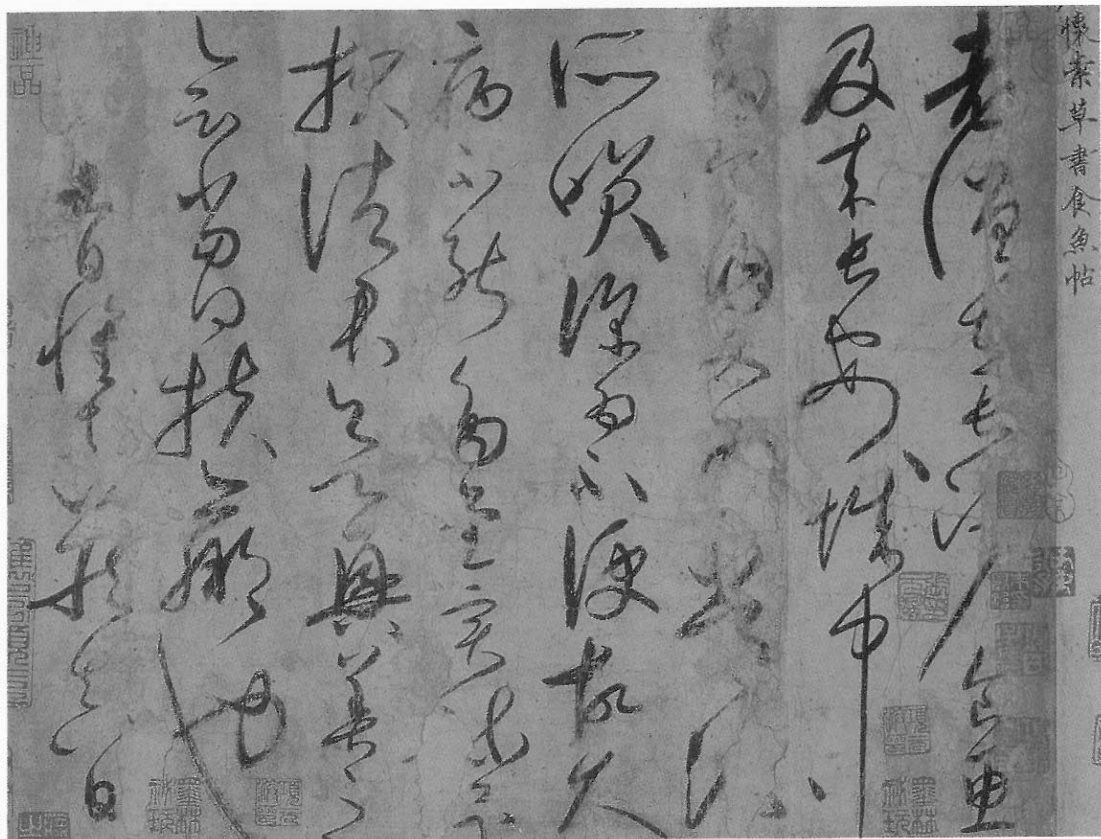 懷素草書食魚帖
老僧在長沙食魚
及來長安城中
多食肉又為常流
所笑深為不便故久
病不能多書實疏還
報諸君欲興善之
會當得扶羸也
九日懷素藏真白
神品